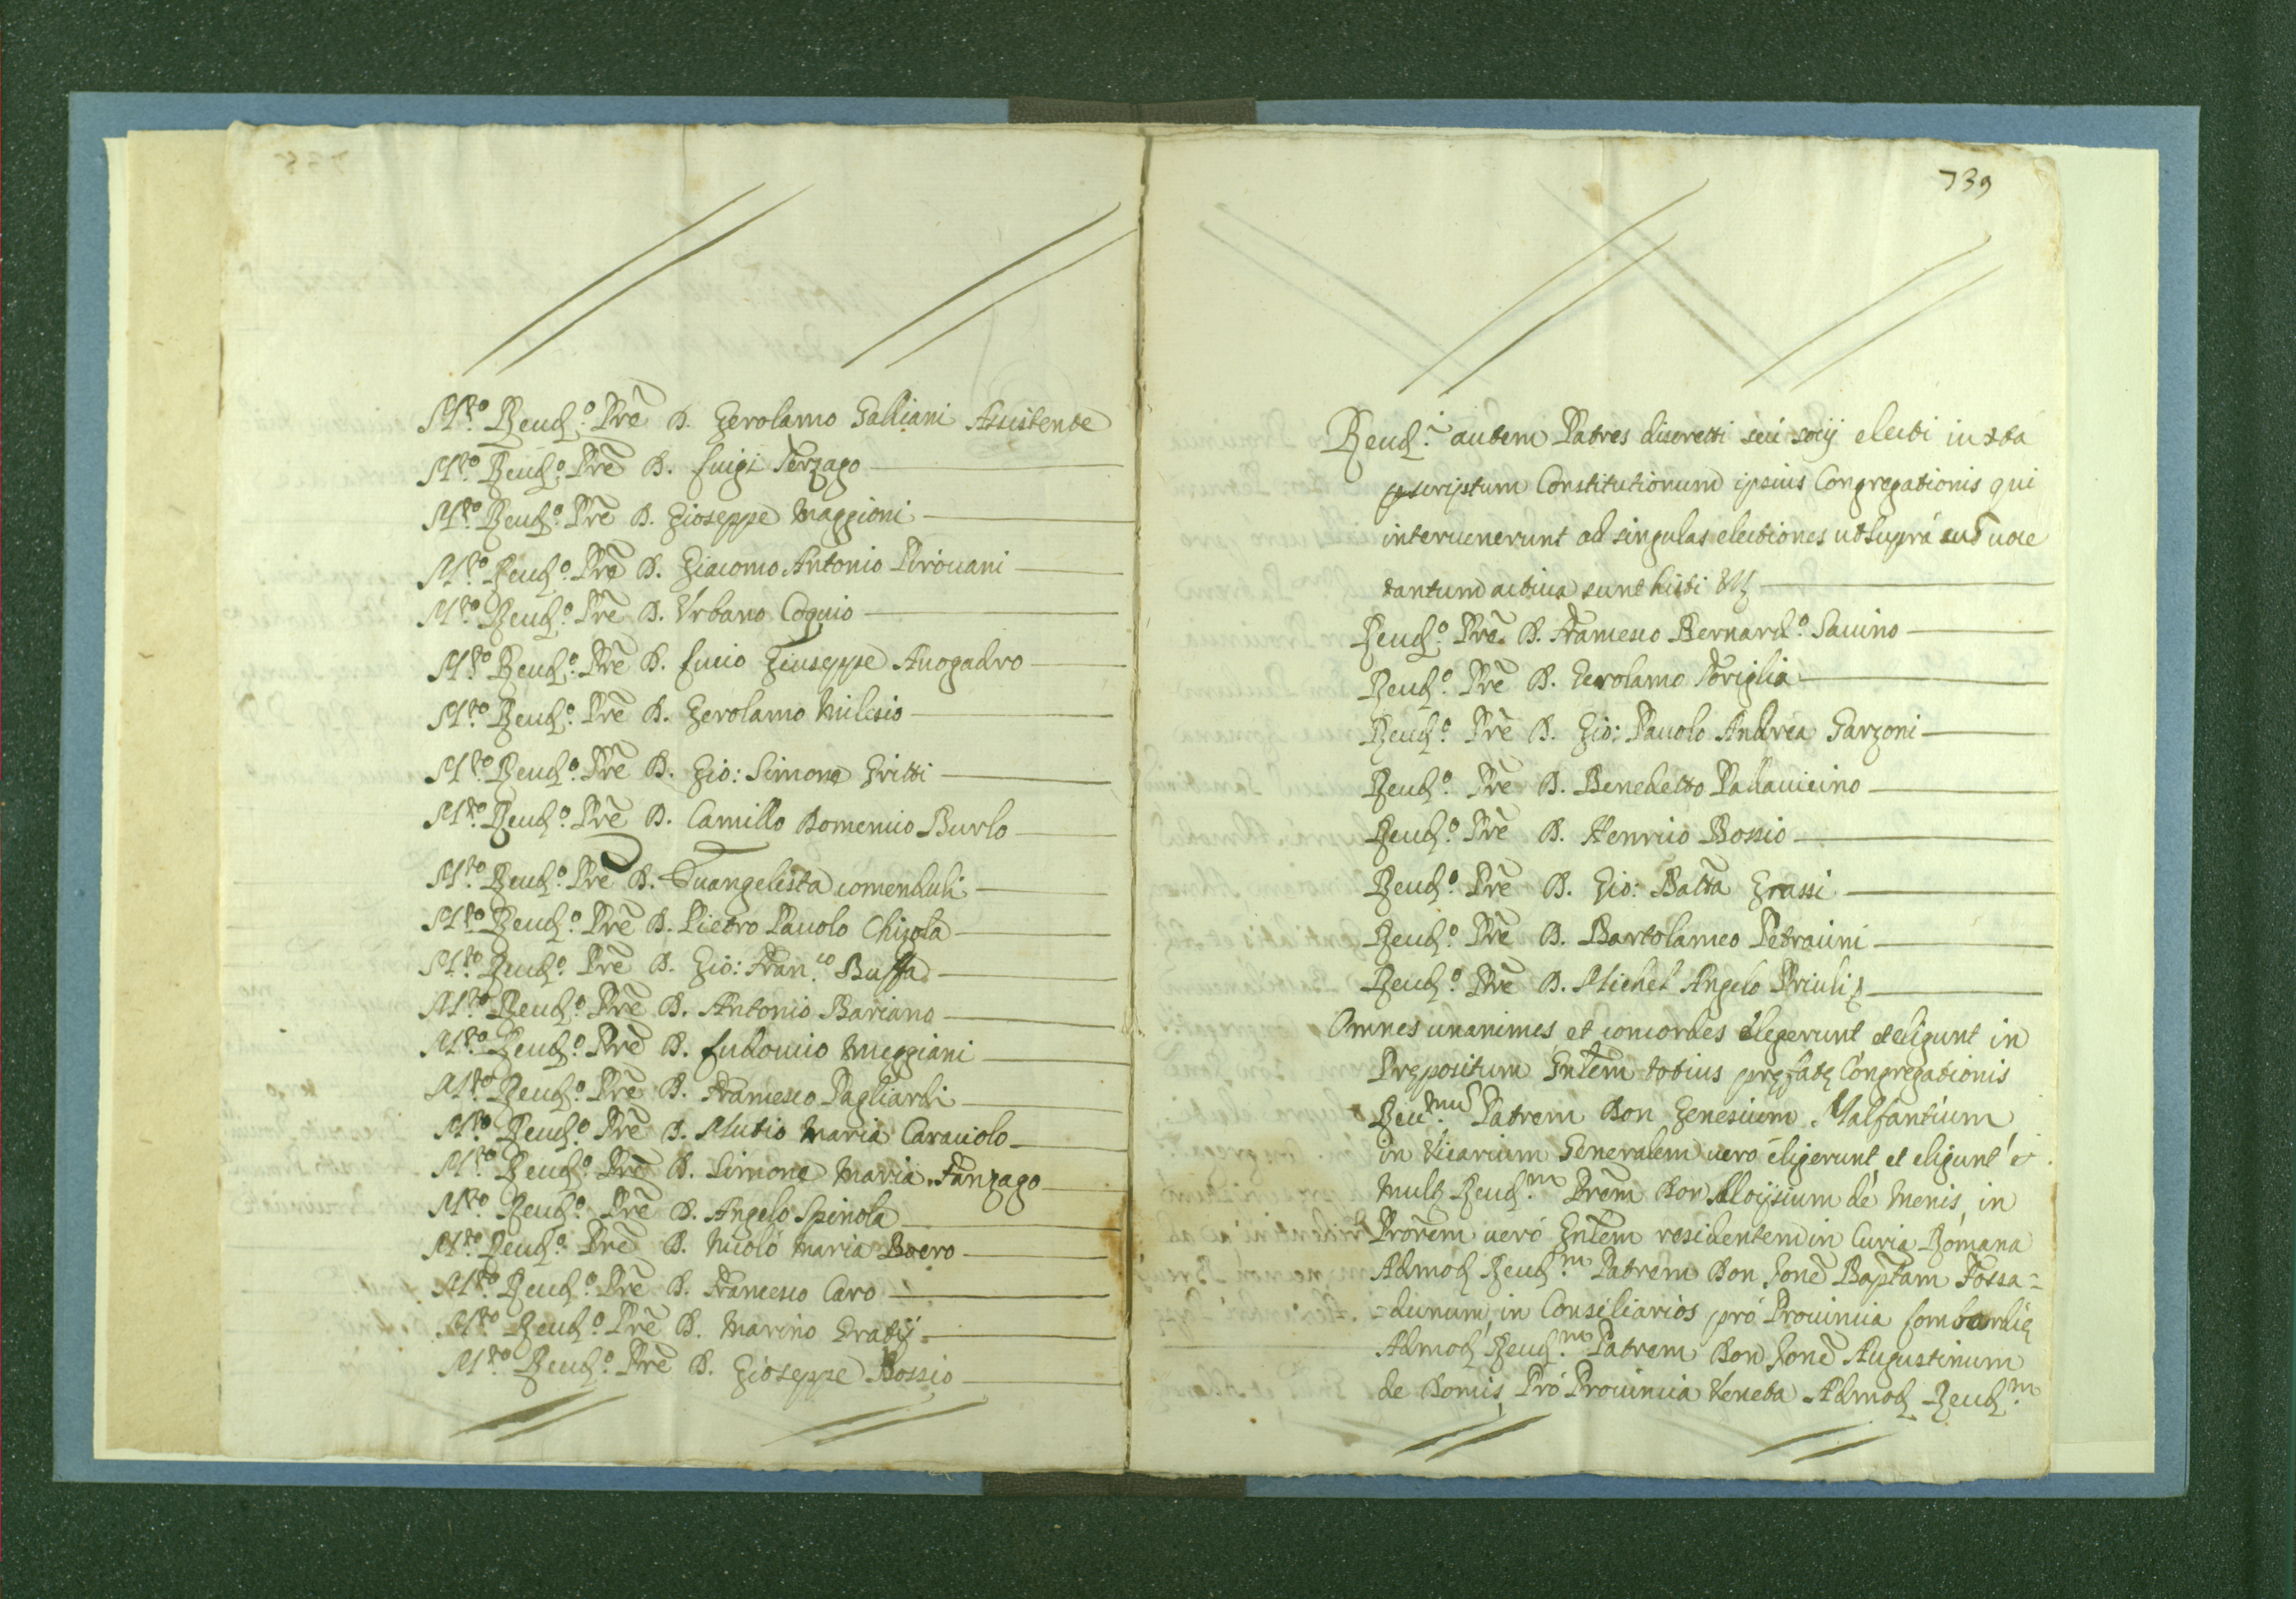 M.to Reud.o Prē D. Gerolamo Galliani Assistente
M.to Reud.o Prē D. Luigi Terzago
M.to Reud.o Prē D. Gioseppe Maggioni
M.to Reud.o Prē D. Giacomo Antonio Pirouani
M.to Reud.o Prē D. Vrbano Coquio
M.to Reud.o Prē D. Lucio Giuseppe Auogadro
M.to Reud.o Prē D. Gerolamo Milesio
M.to Reud.o Prē D. Gio: Simone Gritti
M.to Reud.o Prē D. Camillo Domenico Burlo
M.to Reud.o Prē D. Euangelista comenduli
M.to Reud.o Prē D. Pietro Pauolo Chizola
M.to Reud.o Prē D. Gio: Fran.co Buffa
M.to Reud.o Prē D. Antonio Bariano
M.to Reud.o Prē D. Ludouico Meggiani
M.to Reud.o Prē D. Francesco Pagliardi
M.to Reud.o Prē D. Mutio Maria Caraciolo
M.to Reud.o Prē D. Simone Maria Fanzago
M.to Reud.o Prē D. Angelo Spinola
M.to Reud.o Prē D. Nicolò Maria Boero
M.to Reud.o Prē D. Francesco Caro
M.to Reud.o Prē D. Marino Gratij
M.to Reud.o Prē D. Gioseppe Bossio
739
Reud.i autem Patres discretti seù socij electi iuxta
pscriptum Constitutionum ipsius Congregationis qui
interuenerunt ad singulas electiones ut supra cum uoce
tantum actiua sunt histi Vz
Reud.o Prē D. Francesco Bernard.o Sauino
Reud.o Prē D. Gerolamo Toriglia
Reud.o Prē D. Gio: Pauolo Andrea Garzoni
Reud.o Prē D. Benedetto Palauicino
Reud.o Prē D. Henrico Bossio
Reud.o Prē D. Gio: Battā Grassi
Reud.o Prē D. Bartolameo Petracini
Reud.o Prē D. Michel Angelo Priuli
Omnes unanimes et concordes elegerunt et eligunt in
Prępositum Gnlem totius pręfatę Congregationis
Reu.mum Patrem Don Genesium Malfantium
in Vicarium Generalem uero eligerunt, et eligunt
Mult Reud.m Prēm Don Aloijsium de Menis, in
Prorem uerò Gnlem residentem in Curia Romana
Admod Reud.m Patrem Don Jonē Baptam Fossa=
=dunum, in Consiliarios prò Prouincia Lombardię
Admod Reud.m Patrem Don Jonē Augustinum
de Domis, Prò Prouincia Veneta Admod Reud.m